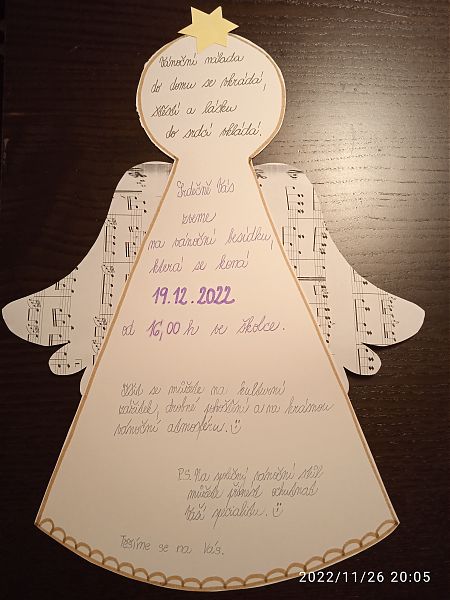 Vánoční nálada
do domu se vkrádá,
štěstí a lásku
do srdcí vkládá.
Srdečně Vás
zveme
na vánoční besídku,
která se koná
19.12.2022
od 16,00 h ve školce.
Těšit se můžete na kulturní
zážitek, drobné pohoštění a na krásnou
vánoční atmosféru.
P.S. Na společný vánoční stůl
můžete přinést ochutnat
Vaši specialitu.
Těšíme se na Vás.
2022/11/26 20:05